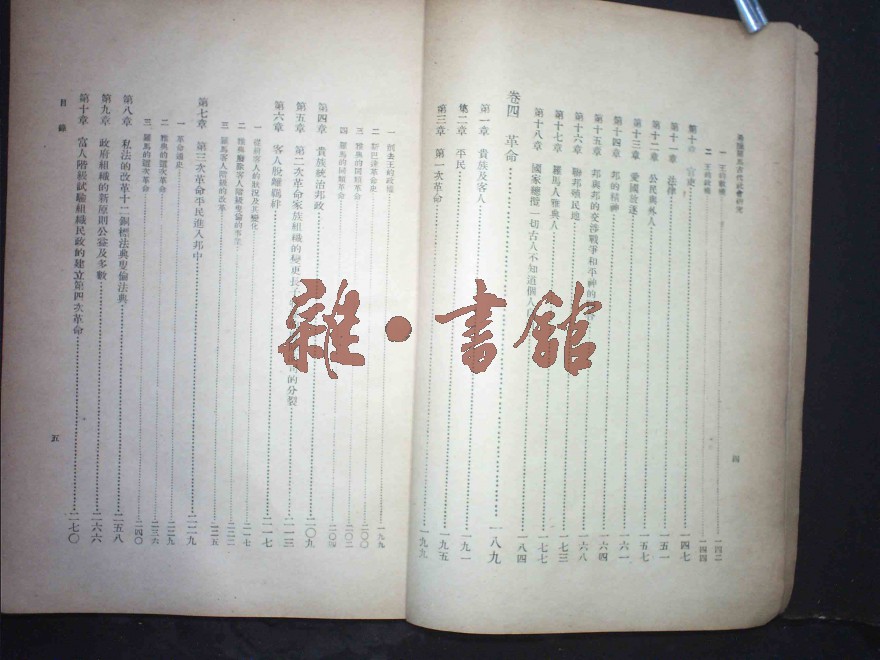 希臘羅馬古代社會研究
一 王的職權……一四二
二 王的政權……一四四
第十章 官吏……一四七
第十一章 法律……一五一
第十二章 公民與外人……一五七
第十三章 愛國放逐……一六一
第十四章 邦的精神……一六四
第十五章 邦與邦的交涉戰爭和平神的
第十六章 聯邦殖民地……一七三
第十七章 羅馬人雅典人……一七七
第十八章 國家總攬一切古人不知道個人……一八四
卷四 革命……一八九
第一章 貴族及客人……一八九
第二章 平民……一九一
第三章 第一次革命……一九五
四
一 削去王的政權……一九九
二 斯巴達革命史……二〇〇
三 雅典的同類革命……二〇二
四 羅馬的同類革命……二〇四
第四章 貴族統治邦政……二〇九
第五章 第二次革命家族組織的變更長
的分裂……二一三
第六章 客人脫離羈絆……二一七
一 從前客人的狀況及其變化……二一七
二 雅典
三 羅馬客人階級的改革……二二五
第七章 第三次革命平民進入邦中……二二九
一 革命通史……二二九
二 雅典的這次革命……二三六
三 羅馬的這次革命……二四〇
第八章 私法的改革十二銅標法典叟倫法典……二五八
第九章 政府組織的新原則公益及多數……二六六
第十章 富人階級試驗組織民政的建立第四次革命……二七〇
目錄
五
雜·書館